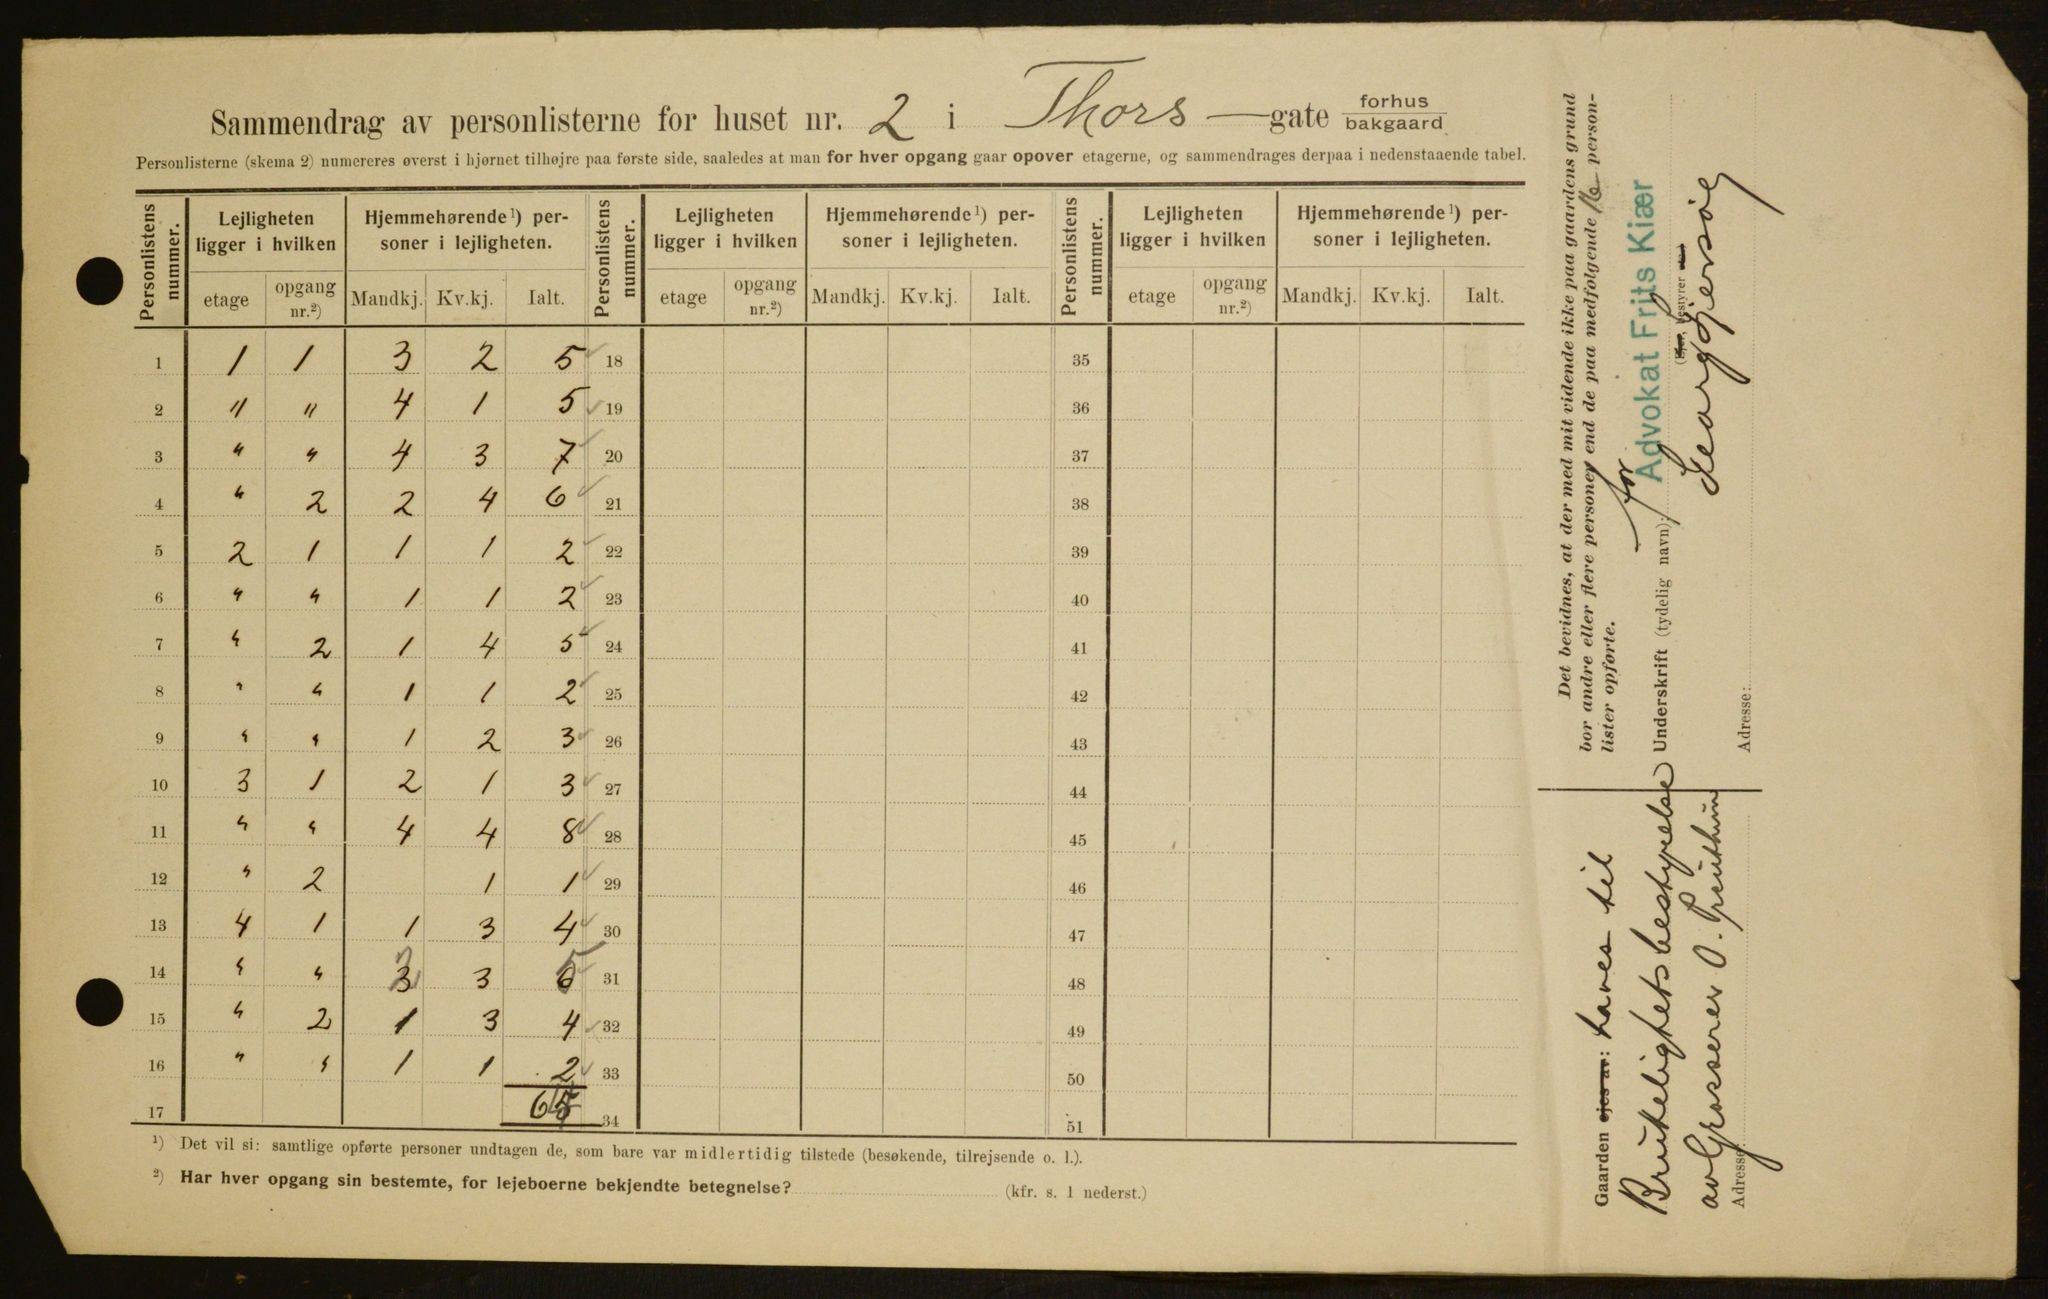 Sammendrag av personlisterne for huset nr. 2 i Thors —gate forhus
bakgaard
Personlisterne (skema 2) numereres øverst i hjørnet tilhøjre paa første side, saaledes at man for hver opgang gaar opover etagerne, og sammendrages derpaa i nedenstaaende tabel.
Personlistens nummer. Lejligheten ligger i hvilken Hjemmehørende 1) personer i lejligheten. Personlistens nummer. Lejligheten ligger i hvilken Hjemmehørende 1) personer i lejligheten. Personlistens nummer. Lejligheten ligger i hvilken Hjemmehørende 1) personer i lejligheten.
etage opgang nr.2) Mandkj. Kv.kj. Ialt. etage opgang nr.2) Mandkj. Kv.kj. Ialt. etage opgang nr.2) Mandkj. Kv.kj. Ialt.
1 1 1 3 2 5 18 35
2 " " 4 1 5 19 36
3 " " 4 3 7 20 37
4 " 2 2 4 6 21 38
5 2 1 1 1 2 22 39
6 " " 1 1 2 23 40
7 " 2 1 4 5 24 41
8 " " 1 1 2 25 42
9 " " 1 2 3 26 43
10 3 1 2 1 3 27 44
11 " " 4 4 8 28 45
12 " 2 1 1 29 46
13 4 1 1 3 4 30 47
14 " " 3 2 3 6 5 31 48
15 " 2 1 3 4 32 49
16 " " 1 1 2 33 50
17 65 34 51
1) Det vil si: samtlige opførte personer undtagen de, som bare var midlertidig tilstede (besøkende, tilrejsende o. l.).
2) Har hver opgang sin bestemte, for lejeboerne bekjendte betegnelse? (kfr. s. 1 nederst.)
Det bevidnes, at der med mit vidende ikke paa gaardens grund
bor andre eller flere personer end de paa medfølgende 16 person-
lister opførte.
for
Advokat Frits Kiær
Underskrift (tydelig navn):
(Ejer, bestyrer
Georg
Adresse:
Gaarden ejes av: haves til
Brutelighetsbestyrelse
av Grosserer O.
Adresse: